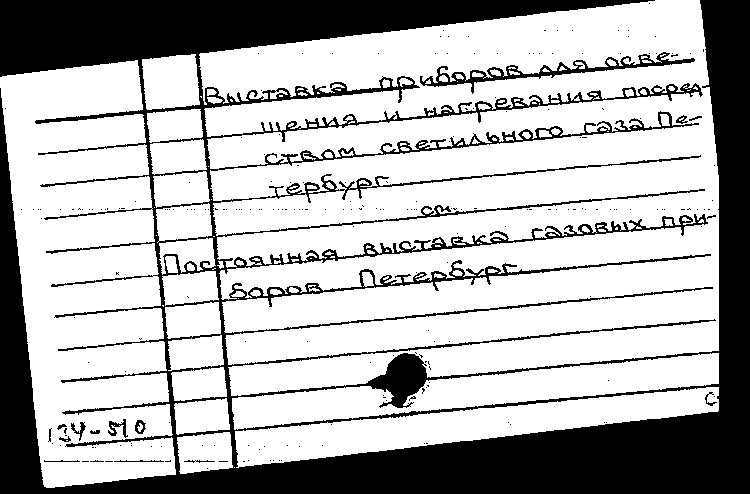 Выставка приборов для осве-
щения и нагревания посред-
ством светильного газа. Пе-
тербург.
см.
Постоянная выставка газовых при-
боров. Петербург.
134-510